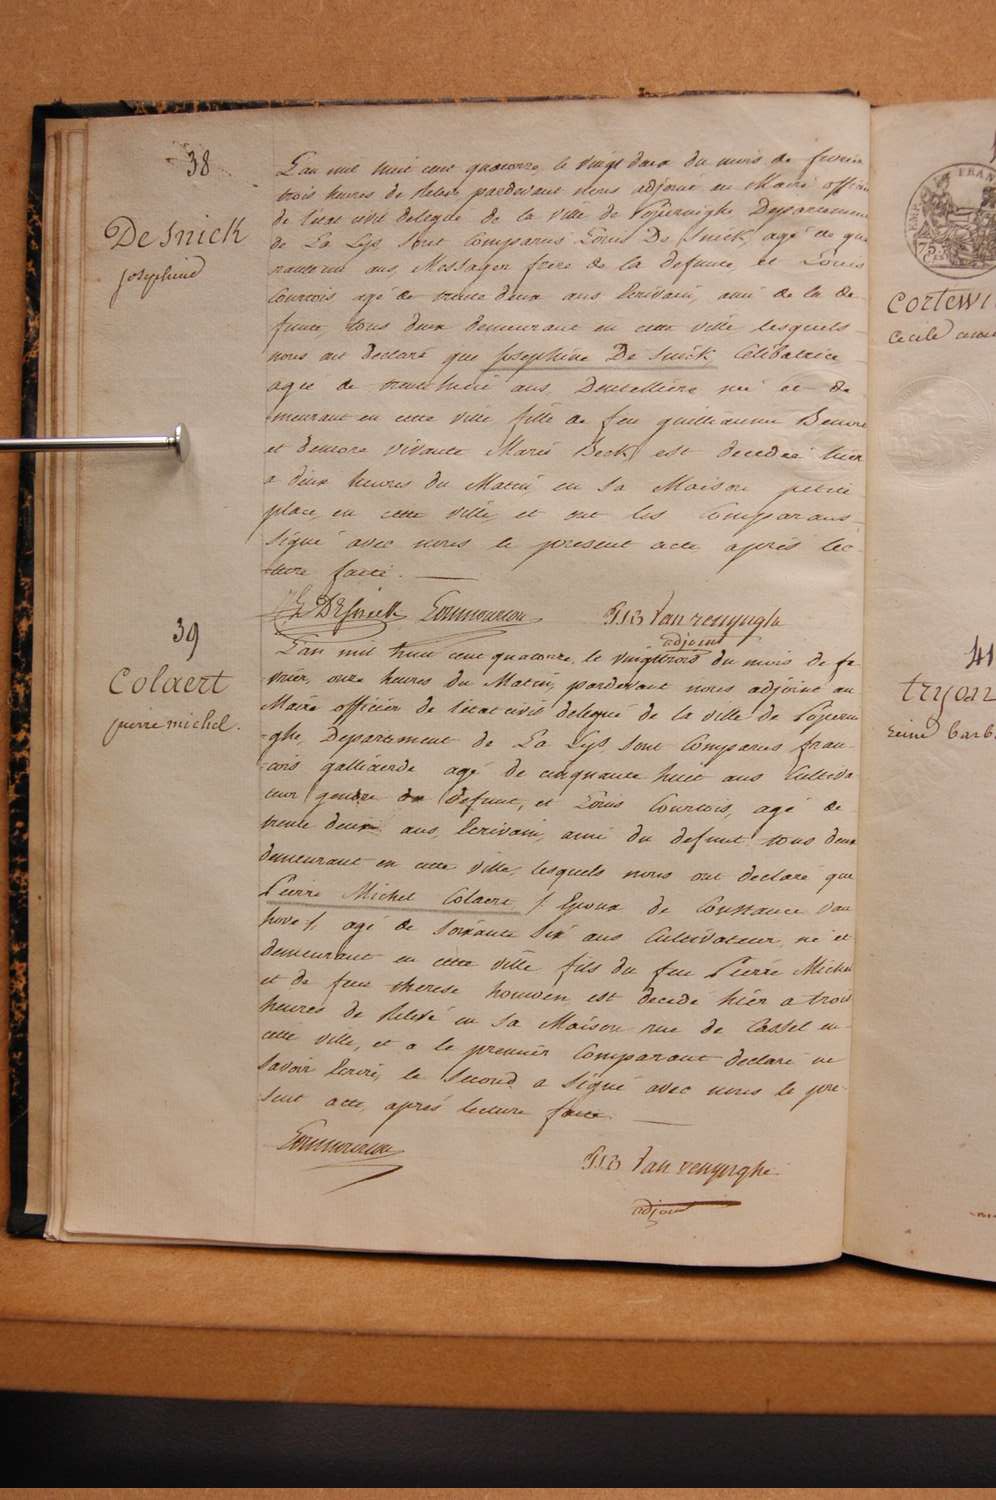 38
De Snick
josephine
L'an mil huit cent quatorze, le vingt deux du mois de fevrier
trois heures de relevé pardevant nous adjoint au Maire officier
de l'etat civil delegué de la ville de Poperinghe Departement
de La Lys sont Comparus Louis De Snick, agé de qua
rante un ans, Messager frere de la defunte, et Louis
Courtois agé de trente deux ans Ecrivain, ami de la de
funte, tous deux demeurant en cette ville lesquels
nous ont declaré que Josephine De Snick, Célibatrice
agée de trente huit ans, Dentellière né et de
meurant en cette ville fille de feu guillaume
et demore vivante Marie Beck, est decedée hier
a deux heures du Matin en sa Maison petite
place, en cette ville, et ont les Comparans
signé avec nous le present acte après lec
ture faite.
DESnick
PJB Vanrenynghe
adjoint
39
Colaert
pierre michel.
L'an mil huit cent quatorze, le vingttrois du mois de fe
vrier, onze heures du Matin, pardevant nous adjoint au
Maire officier de l'etat civil delegué de la ville de Poperin
ghe, Departement de La Lys, sont Comparus fran
cois galliaerde agé de cinquante huit ans Cultiva
teur gendre de defunt, et Louis Courtois, agé de
trente deux ans, Ecrivain, ami du defunt tous deux
demeurant en cette ville, lesquels nous ont declaré que
Pierre Michel Colaert / Epoux de Constance van
hove /, agé de soixante six ans Cultivateur, né et
demeurant en cette ville fils du feu Pierre Michel
et de feue therese houwen, est decedé hier a trois
heures de relevé en sa Maison rue de Cassel en
cette ville, et a le premier Comparant declaré ne
savoir Ecrire, le second a signé avec nous le pre
sent acte, après lecture faite.
PJB Vanrenynghe
adjoint
FRAN
EMP
Cortewi
Cecile
41
tryon
reine barb